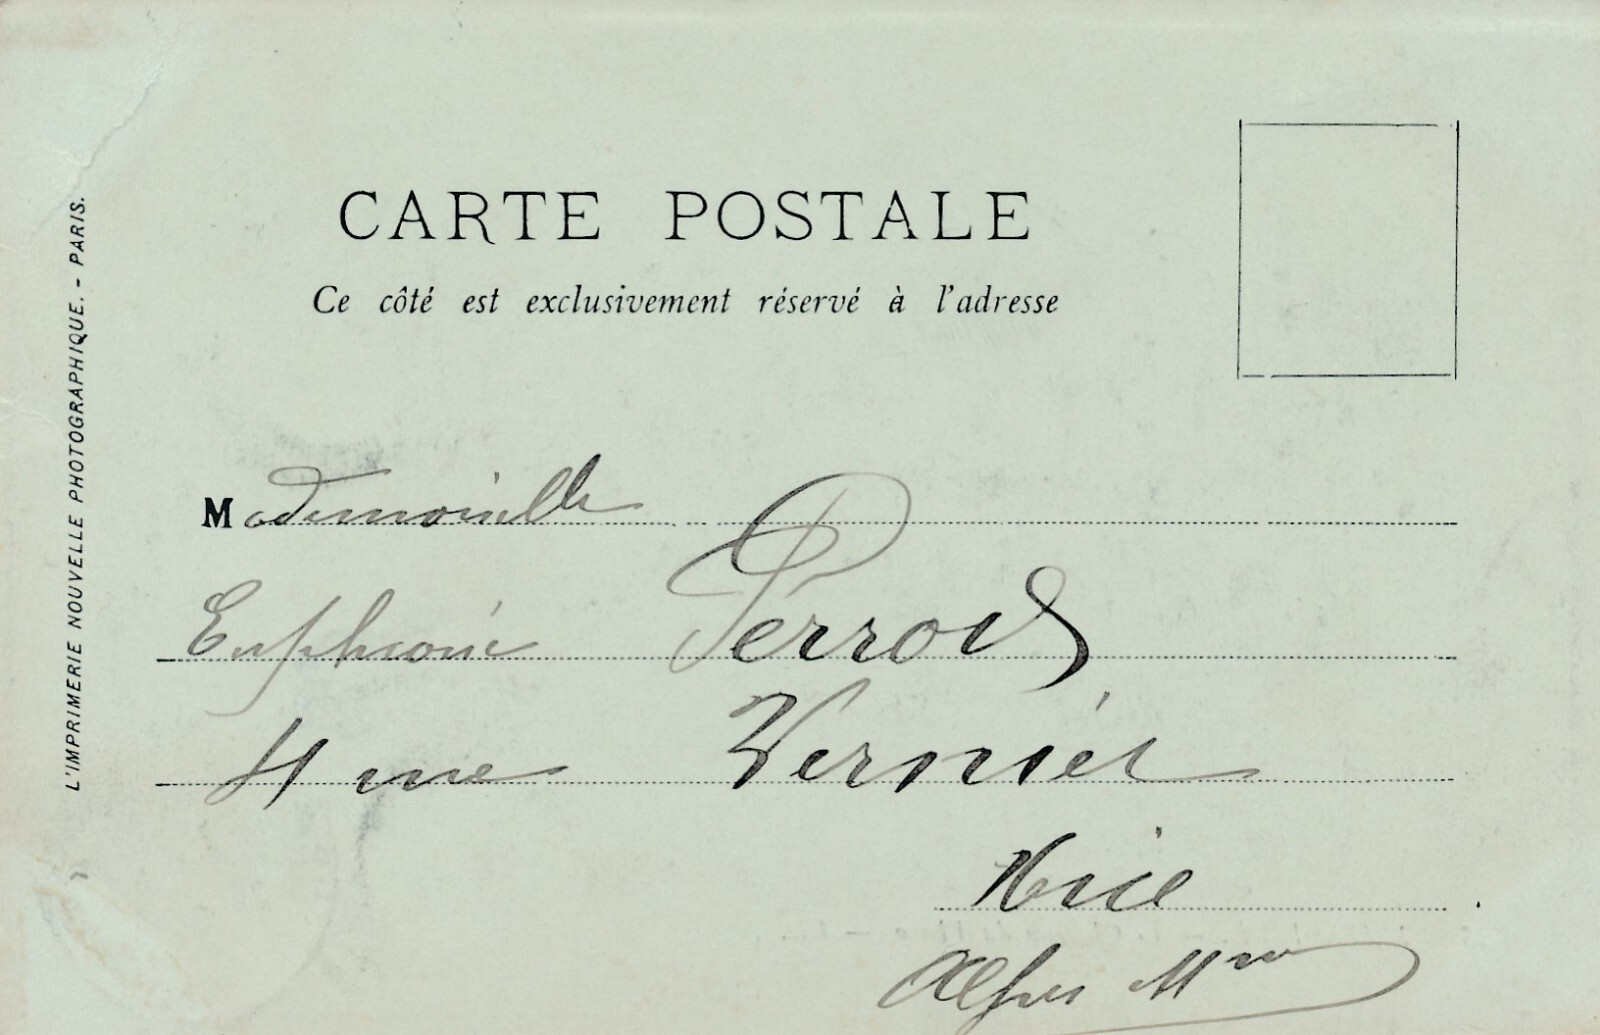 CARTE POSTALE
Ce côté est exclusivement réservé à l'adresse
Mademoiselle
Euphrasie Perrod
Vernier
Nice
Alpes Mmes
L'IMPRIMERIE NOUVELLE PHOTOGRAPHIQUE. - PARIS.